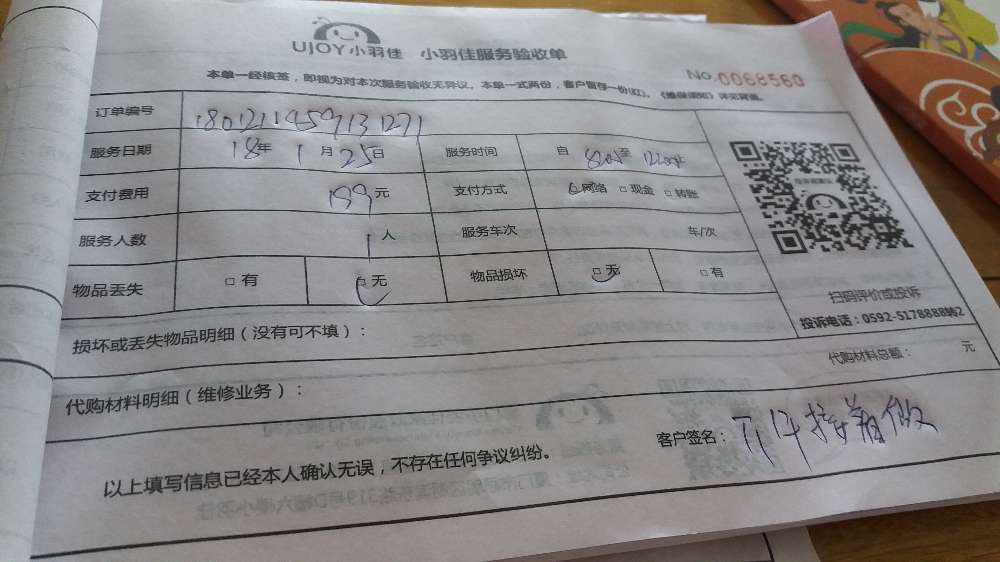 UJOY小羽佳 小羽佳服务验收单
No.0068560
本单一经核签，即视为对本次服务验收无异议。本单一式两份，客户留存一份(红)。《维保须知》详见背面。
订单编号
服务日期 18年 1月25日 服务时间 自 至
支付费用 199元 支付方式 网络 □现金 □转账
服务人数 1人 服务车次 车/次
物品丢失 □有 □无 物品损坏 □无 □有
扫码评价或投诉
投诉电话：0592-5178888转2
损坏或丢失物品明细（没有可不填）：
代购材料总额： 元
代购材料明细（维修业务）：
客户签名：
以上填写信息已经本人确认无误，不存在任何争议纠纷。